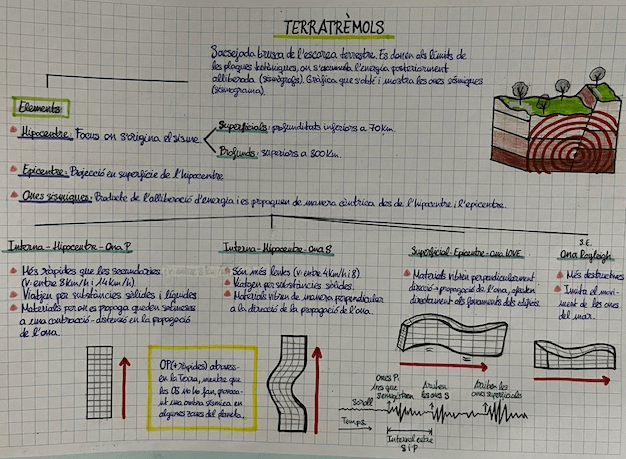 TERRATRÈMOLS
Sacsejada brusca de l'escorça terrestre. Es donen als límits de
les plaques tectòniques, on s'acumula l'energia posteriorment
alliberada (sismògrafs). Gràfica que s'obté i mostra les ones sísmiques
(sismograma).
Elements
Hipocentre: Focus on s'origina el sisme
Superficials: profunditats inferiors a 70Km.
Profunds: superiors a 300Km.
Epicentre: Projecció en superfície de l'hipocentre.
Ones sísmiques: Producte de l'alliberació d'energia i es propaguen de manera cèntrica des de l'hipocentre i l'epicentre.
Interna-Hipocentre-Ona P
Més ràpides que les secundàries
(v. entre 8Km/h i 14Km/h)
Viatgen per substàncies sòlides i líquides
Materials per on es propaga queden sotmesos
a una contracció-distensió en la propagació
de l'ona.
OP(+ràpides) atraves-
en la Terra, mentre que
les OS no ho fan, provoca-
nt una ombra sísmica en
algunes zones del planeta.
Interna-Hipocentre-Ona S
Són més lentes (v. entre 4Km/h i 8)
Viatgen per substàncies sòlides.
Materials vibren de manera perpendicular
a la direcció de la propagació de l'ona.
Superficial-Epicentre-ona LOVE
Materials vibren perpendicularment
direcció propagació de l'ona, afecten
directament als fonaments dels edificis.
S.E.
Ona Rayleigh
Més destructives
Imita el movi-
ment de les ones
del mar.
Ones P,
les que
s'enregistren
Arriben
les ones S
Arriben les
ones superficials
Soroll
Temps
Interval entre
S i P